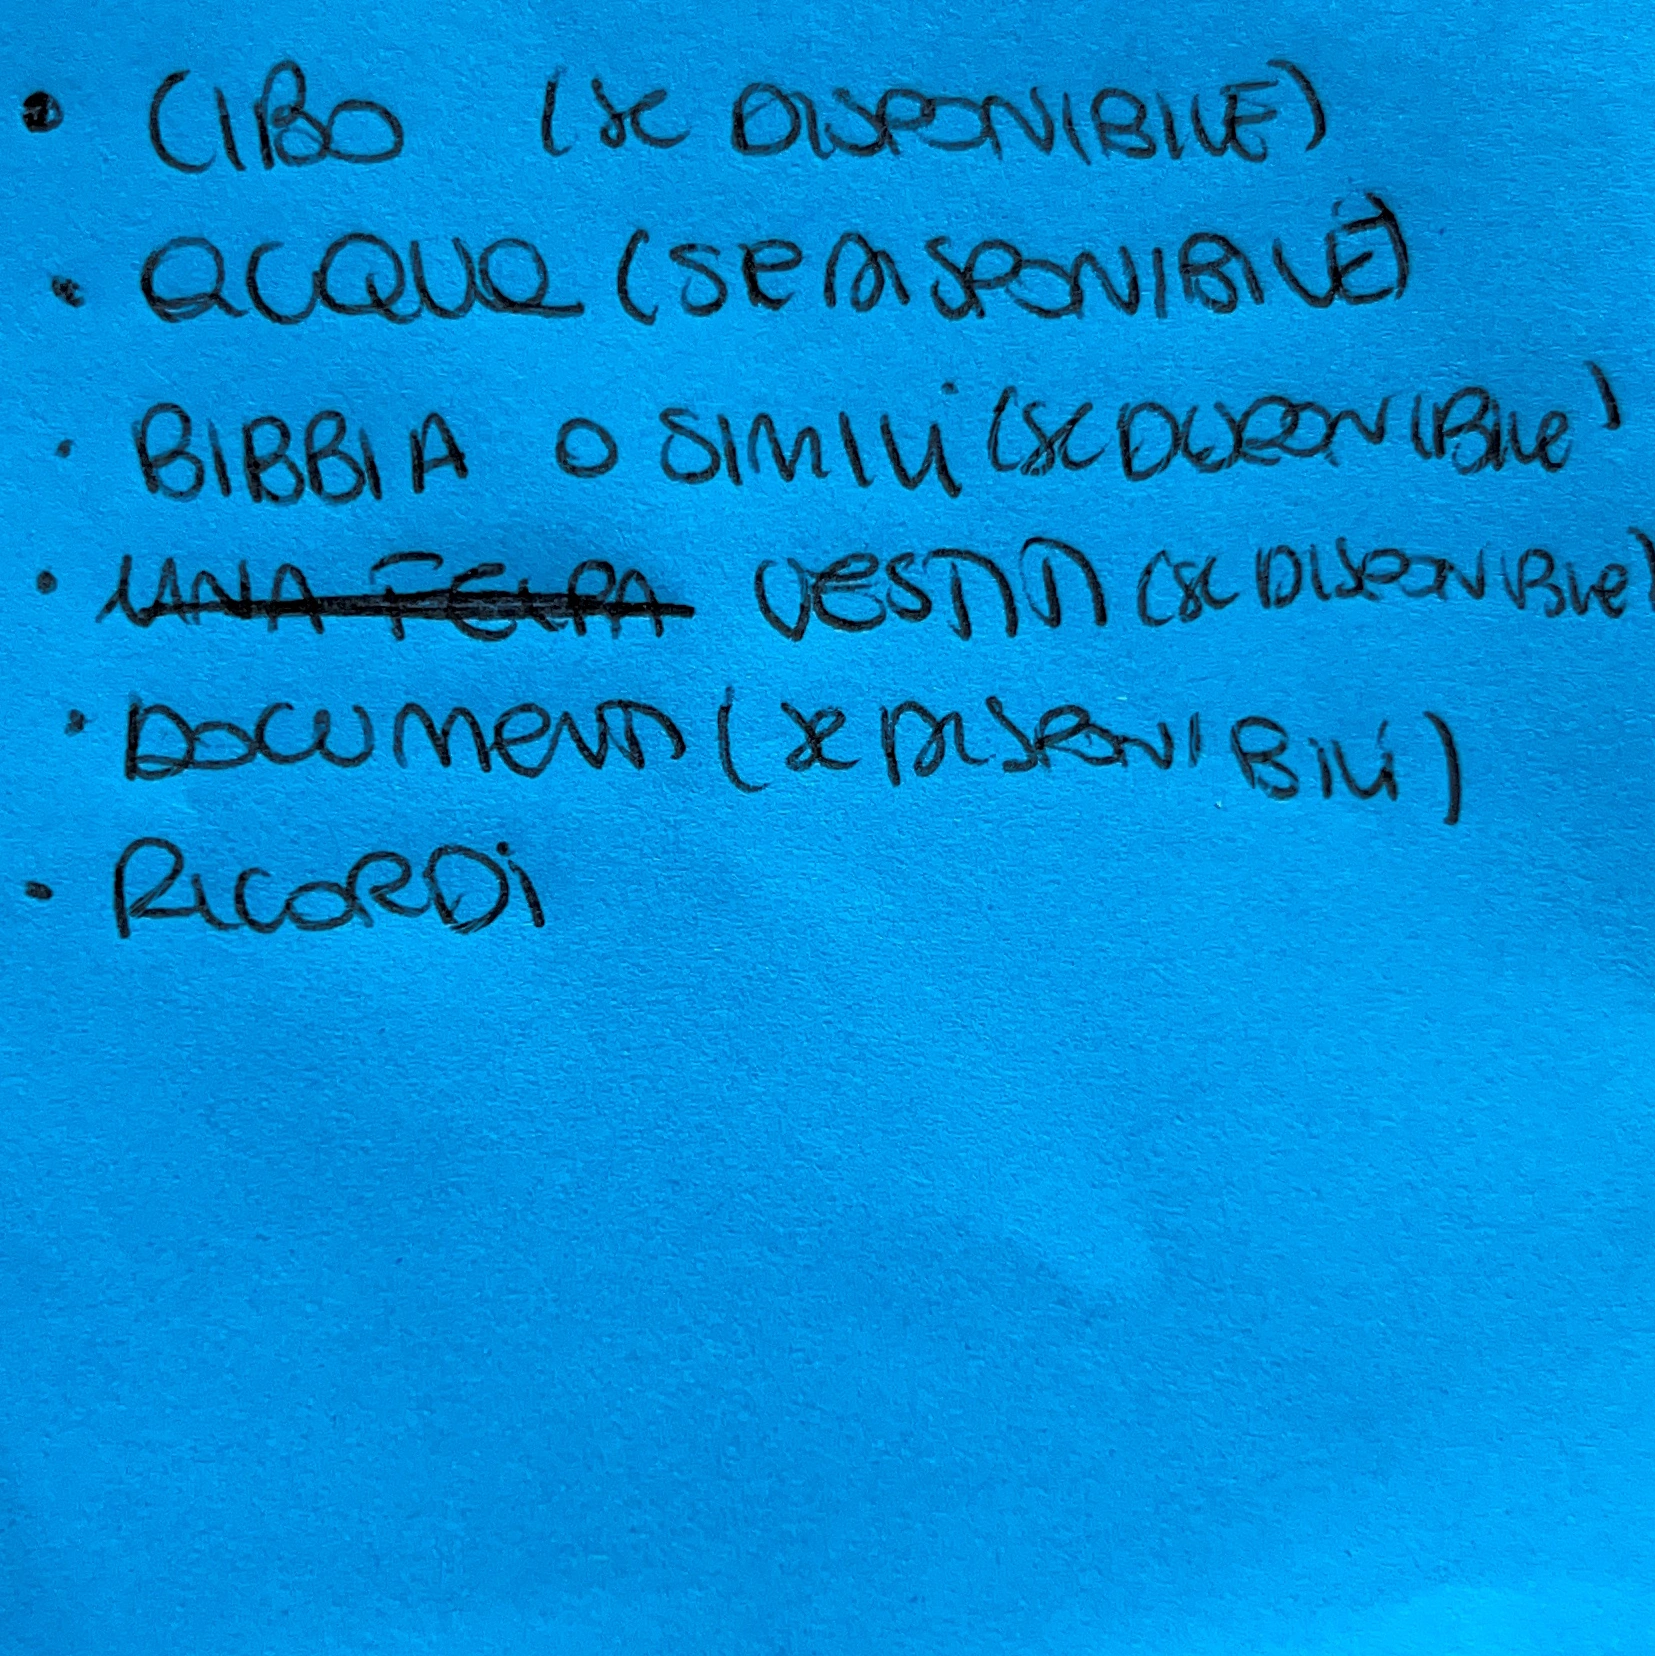 • CIBO (SE DISPONIBILE)
• ACQUA (SE DISPONIBILE)
• BIBBIA O SIMILI (SE DISPONIBILE)
• UNA FELPA VESTITI (SE DISPONIBILE)
• DOCUMENTI (SE DISPONIBILI)
• RICORDI